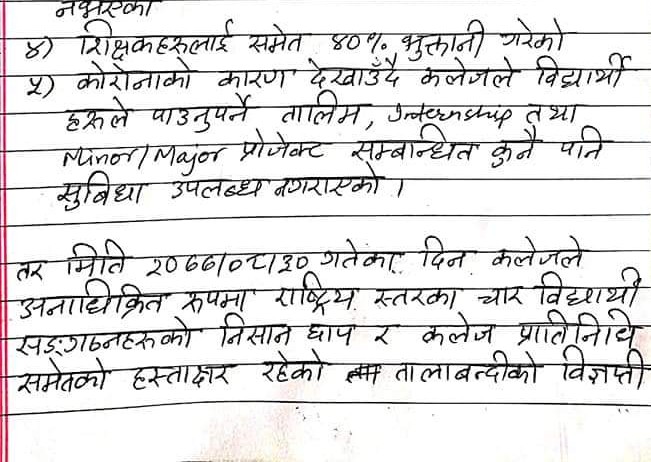 नभएको
४) शिक्षकहरुलाई समेत ४०% भुक्तानी गरेको
५) कोरोनाको कारण देखाउँदै कलेजले विद्यार्थी
हरुले पाउनुपर्ने तालिम, Internship तथा
Minor/Major प्रोजेक्ट सम्बन्धित कुनै पनि
सुबिधा उपलब्ध नगराएको ।
तर मिति गतेका दिन कलेजले
अनाधिक्रित रुपमा राष्ट्रिय स्तरका चार विद्यार्थी
सङ्गठनहरुको निसान छाप र कलेज प्रतिनिधि
समेतको हस्ताक्षर रहेको तालाबन्दीको विज्ञप्ती